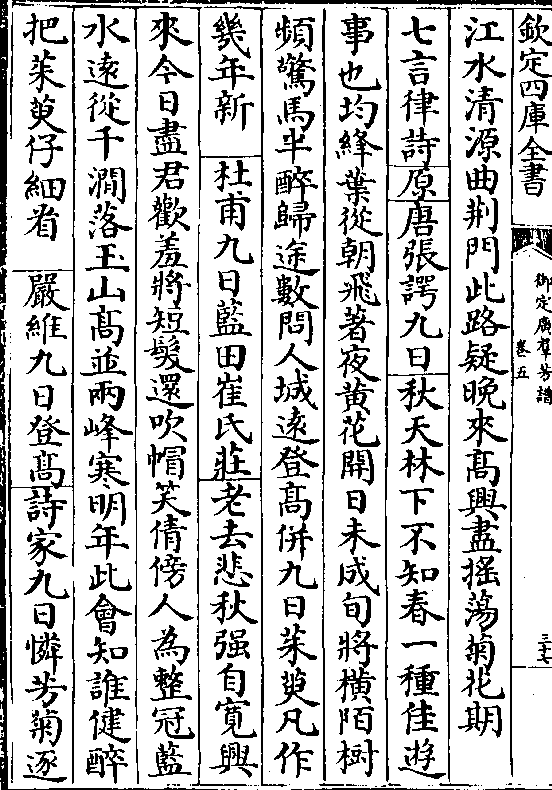 欽定四庫全書
御定廣羣芳譜
卷五
三十七
江水清源曲荆門此路疑晚來髙興盡搖蕩菊花期
七言律詩原唐張諤九日秋天林下不知春一種佳遊
事也均絳葉從朝飛著夜黄花開日未成旬將橫陌樹
頻驚馬半醉歸途數問人城遠登髙併九日茱萸凡作
幾年新　杜甫九日藍田崔氏莊老去悲秋强自寛興
來今日盡君歡羞將短髮還吹帽笑倩傍人為整冠藍
水遠從千澗落玉山髙並兩峰寒明年此會知誰健醉
把茱萸仔細看　嚴維九日登髙詩家九日憐芳菊逐